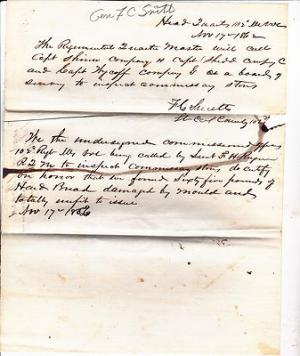 Gen F C Smith
Head Quarts 102 Ills Vols
Nov 17 - 1862
The Regimental Quarter Master will call
Capt Shinn Company H Capt Shedd Company C
and Capt Wycoff Company I as a board of
survey to inspect commissary stores
F C Smith
Lt Col Comdg 102
We the undersigned commissioned offers
102 Regt Ills Vol being called by Lieut F H
R Q M to inspect commissary stores do certify
on honor that we found Sixty five pounds of
Hard Bread damaged by mould and
totally unfit to issue
Nov 17 - 1862